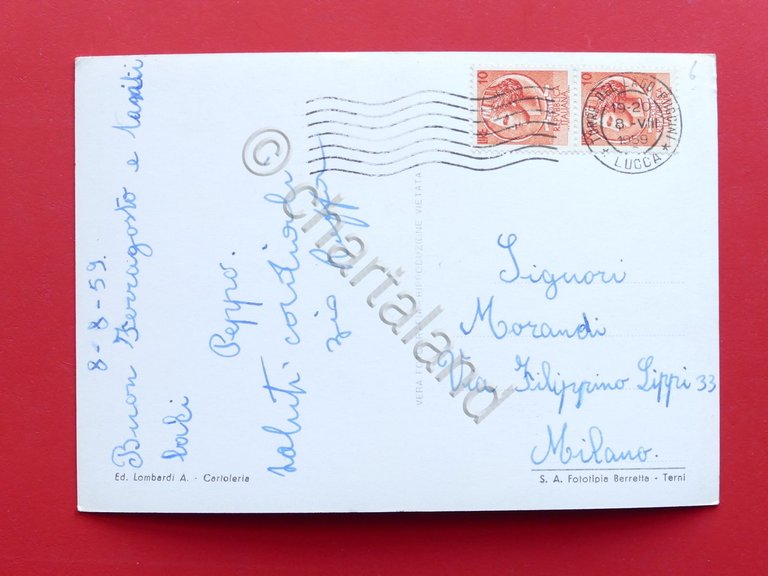 8-8-59.
Buon Ferragosto e tanti
baci
Peppo.
saluti cordiali
zio
VERA FOTOGRAFIA RIPRODUZIONE VIETATA
Ed. Lombardi A. - Cartoleria
10
LIRE
REPUBBLICA
ITALIANA
10
TORRE DEL LAGO PUCCINI
19-20
8-VIII
1959
* LUCCA *
6
Signori
Morandi
Via Filippino Lippi 33
Milano.
S. A. Fototipia Berretta - Terni
© chartaland